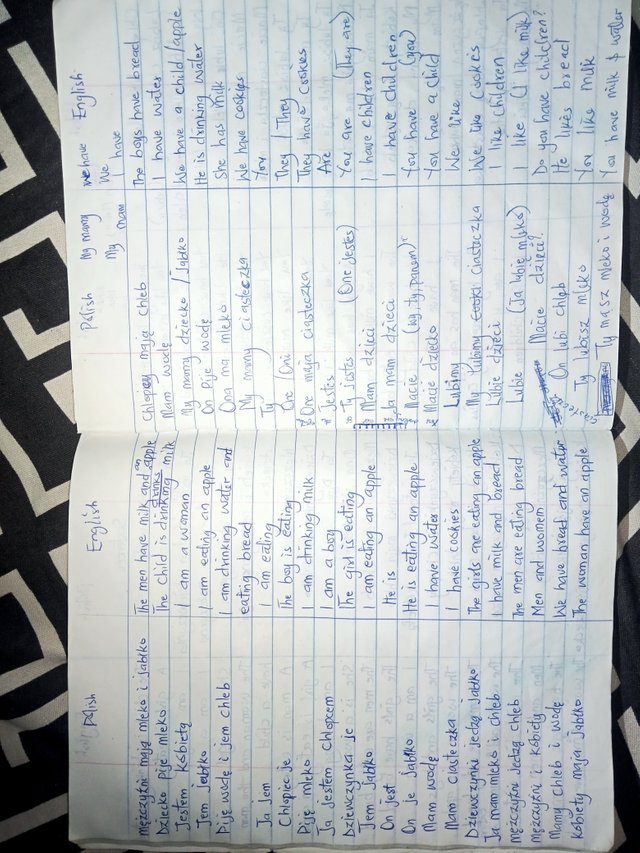 Polish English
mężczyźni mają mleko i jabłko The men have milk and an apple
Dziecko pije mleko The child is drinking milk drinks
Jestem kobietą I am a woman
Jem jabłko I am eating an apple
Piję wodę i jem chleb I am drinking water and
eating bread
Ja jem I am eating
Chłopiec je The boy is eating
Piję mleko I am drinking milk
Ja jestem chłopcem I am a boy
Dziewczynka je The girl is eating
Jem jabłko I am eating an apple
On jest He is
On je jabłko He is eating an apple
Mam wodę I have water
Mam ciasteczka I have cookies
Dziewczynki jedzą jabłko The girls are eating an apple
Ja mam mleko i chleb I have milk and bread
mężczyźni jedzą chleb The men are eating bread
mężczyźni i kobiety Men and women
Mamy chleb i wodę We have bread and water
Kobiety maja jabłko The woman have an apple
Polish My mamy we have English
My We
mam I have
Chłopcy mają chleb The boys have bread
Mam wodę I have water
My mamy dziecko / jabłko We have a child / apple
On pije wodę He is drinking water
Ona ma mleko She has milk
My mamy ciasteczka We have cookies
Ty You
One / Oni They / They
One maja ciasteczka They have cookies
Jesteś Are
Ty jesteś (One jesteś) You are (They are)
Mam dzieci I have children
Ja mam dzieci I have children
Macie (ky, ty, panem) You have (you)
Macie dziecko You have a child
Lubimy We like
My lubimy ciasteczka We like cookies
Lubię dzieci I like children
Lubie (Ja lubię mleko) I like (I like milk)
Macie dzieci? Do you have children?
On lubi chleb He likes bread
Ty lubisz mleko You like milk
Ty masz mleko i wodę You have milk & water